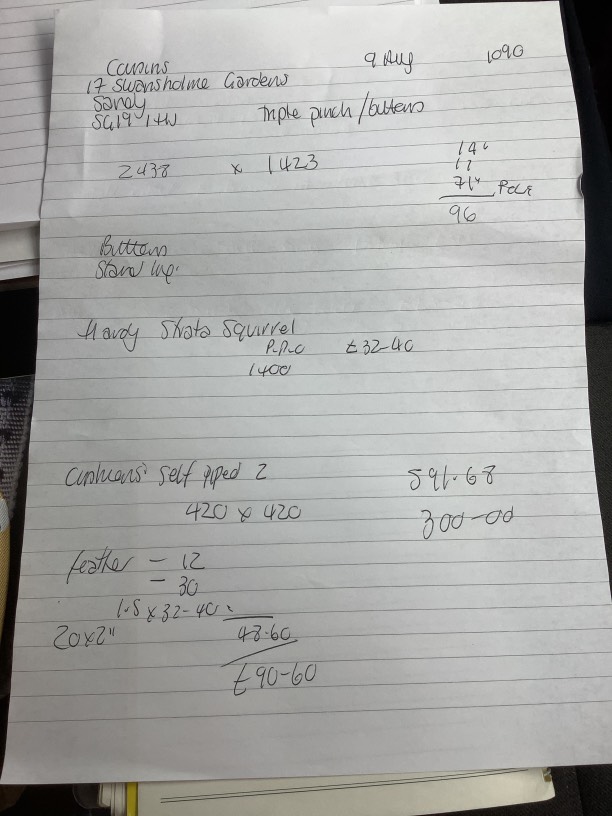 Cousins 9 Aug 1090
17 Swansholme Gardens
Sandy
SG19 1HN Triple pinch/buttons
2438 x 1423
14"
11
71" Pole
96
Buttons
Stand up.
Hardy Strata Squirrel
P.P.C £32-40
1400
Cushions self piped 2 591.68
420 x 420 300-00
feather - 12
- 30
1.5 x 32-40
20x2" 48.60
£90-60